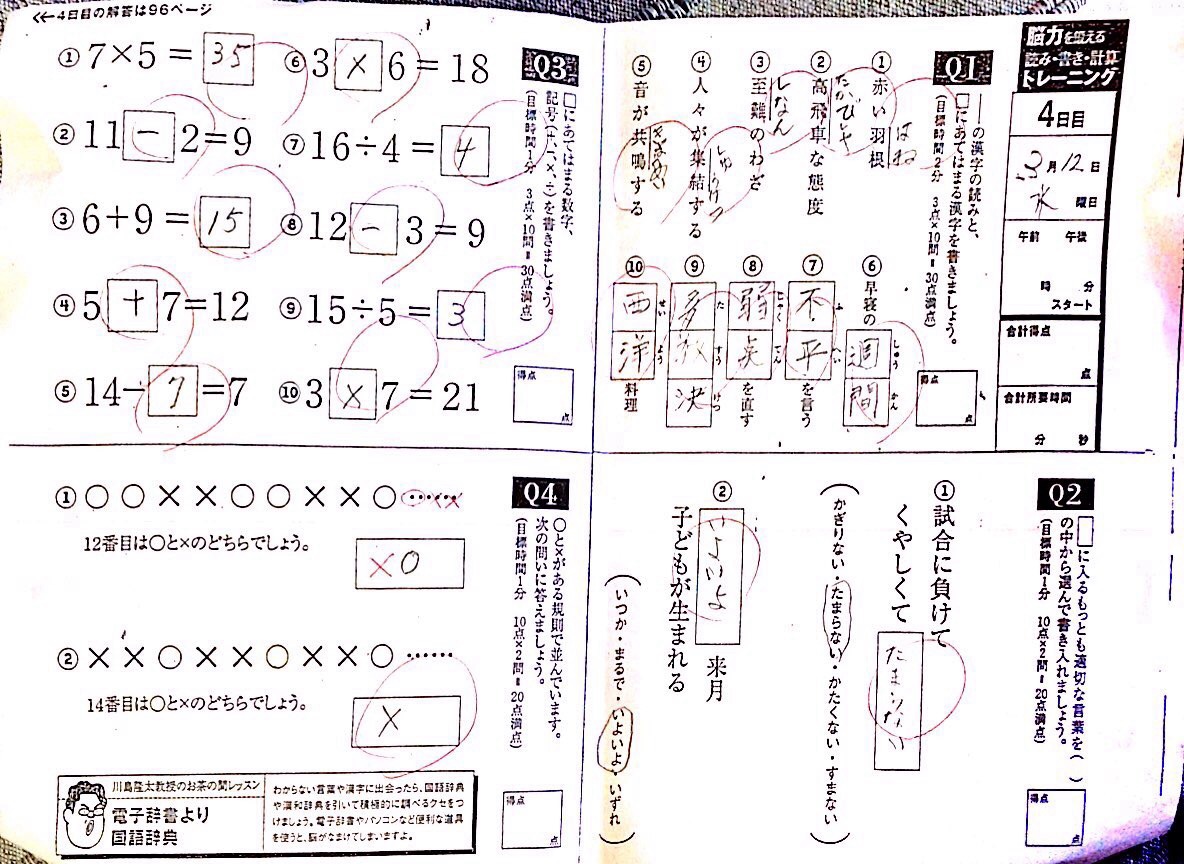 ≪4日目の解答は96ページ
脳力を鍛える
読み・書き・計算
トレーニング
4日目
3月12日
水曜日
午前 午後
時 分
スタート
合計得点
点
合計所要時間
分 秒
Q1
――の漢字の読みと、
□にあてはまる漢字を書きましょう。
(目標時間2分 3点×10問=30点満点)
① 赤い羽根
はね
② 高飛車な態度
たかびしゃ
③ 至難のわざ
しなん
④ 人々が集結する
しゅうけつ
⑤ 音が共鳴する
⑥ 早寝の週間
しゅう かん
⑦ 不平を言う
ふ へい
⑧ 弱点を直す
じゃく てん
⑨ 多数決
た すう けつ
⑩ 西洋料理
せい よう
得点
点
Q3
□にあてはまる数字、
記号(+、−、×、÷)を書きましょう。
(目標時間1分 3点×10問=30点満点)
① 7×5=35
② 11−2=9
③ 6+9=15
④ 5+7=12
⑤ 14−7=7
⑥ 3×6=18
⑦ 16÷4=4
⑧ 12−3=9
⑨ 15÷5=3
⑩ 3×7=21
得点
点
Q2
□に入るもっとも適切な言葉を( )
の中から選んで書き入れましょう。
(目標時間1分 10点×2問=20点満点)
① 試合に負けて
くやしくて たまらない
(かぎりない・たまらない・かたくない・すまない)
② いよいよ 来月
子どもが生まれる
(いつか・まるで・いよいよ・いずれ)
得点
点
Q4
○と×がある規則で並んでいます。
次の問いに答えましょう。
(目標時間1分 10点×2問=20点満点)
① ○○××○○××○……○××
12番目は○と×のどちらでしょう。
×○
② ××○××○××○……
14番目は○と×のどちらでしょう。
×
得点
点
川島隆太教授のお茶の間レッスン
電子辞書より
国語辞典
わからない言葉や漢字に出会ったら、国語辞典
や漢和辞典を引いて積極的に調べるクセをつ
けましょう。電子辞書やパソコンなど便利な道具
を使うと、脳がなまけてしまいますよ。